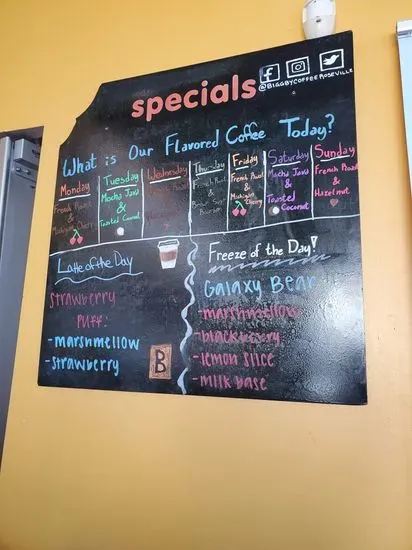 specials
@BIGGBYCOFFEEROSEVILLE
What is Our Flavored Coffee Today?
Monday
French Roast
&
Michigan Cherry
Tuesday
Mocha Java
&
Toasted Coconut
Wednesday
French Roast
&
Thursday
French Roast
&
Brown Sugar
Bourbon
Friday
French Roast
&
Michigan Cherry
Saturday
Mocha Java
&
Toasted
Coconut
Sunday
French Roast
&
Hazelnut
Latte of the Day
Strawberry
Puff:
-marshmellow
-strawberry
B
Freeze of the Day!
Galaxy Bear
-marshmellow
-blackberry
-lemon slice
-milk base